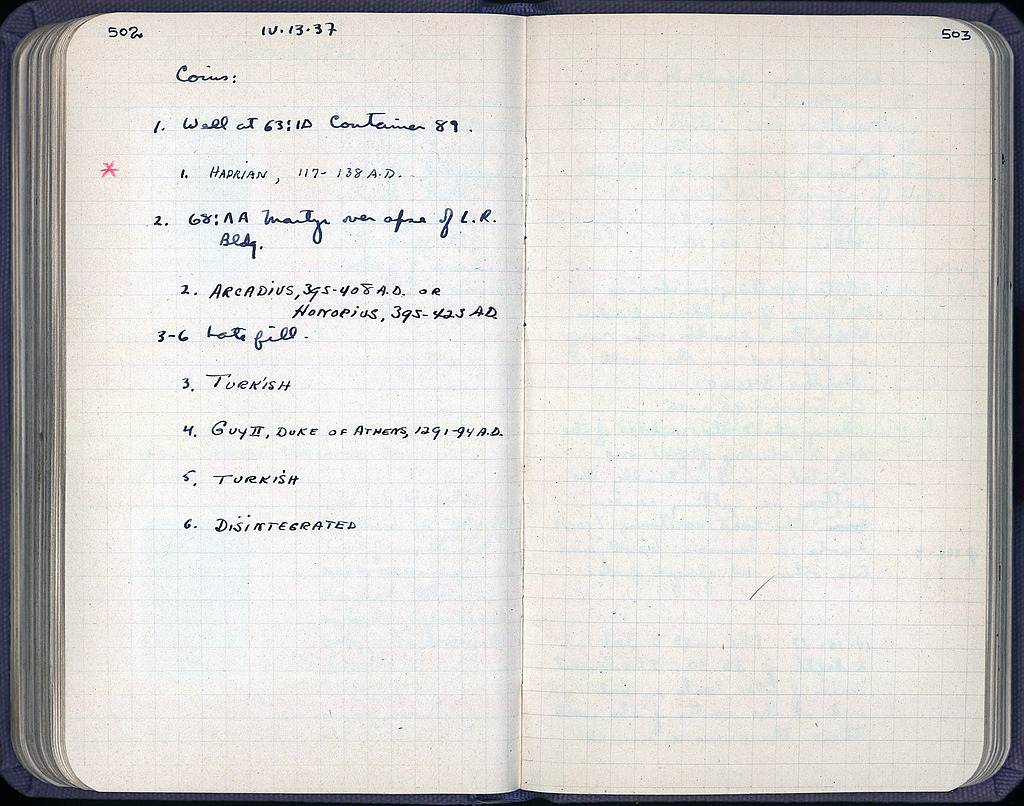 502
IV.13.37
Coins:
1. Well at 63:ID Container 89.
1. HADRIAN, 117-138 A.D.
2. 68:AA Martyr over apse of L.R.
Bldg.
2. ARCADIUS, 395-408 A.D. OR
HONORIUS, 395-423 A.D.
3-6 Late fill.
3. TURKISH
4. GUY II, DUKE OF ATHENS, 1291-94 A.D.
5. TURKISH
6. DISINTEGRATED
503